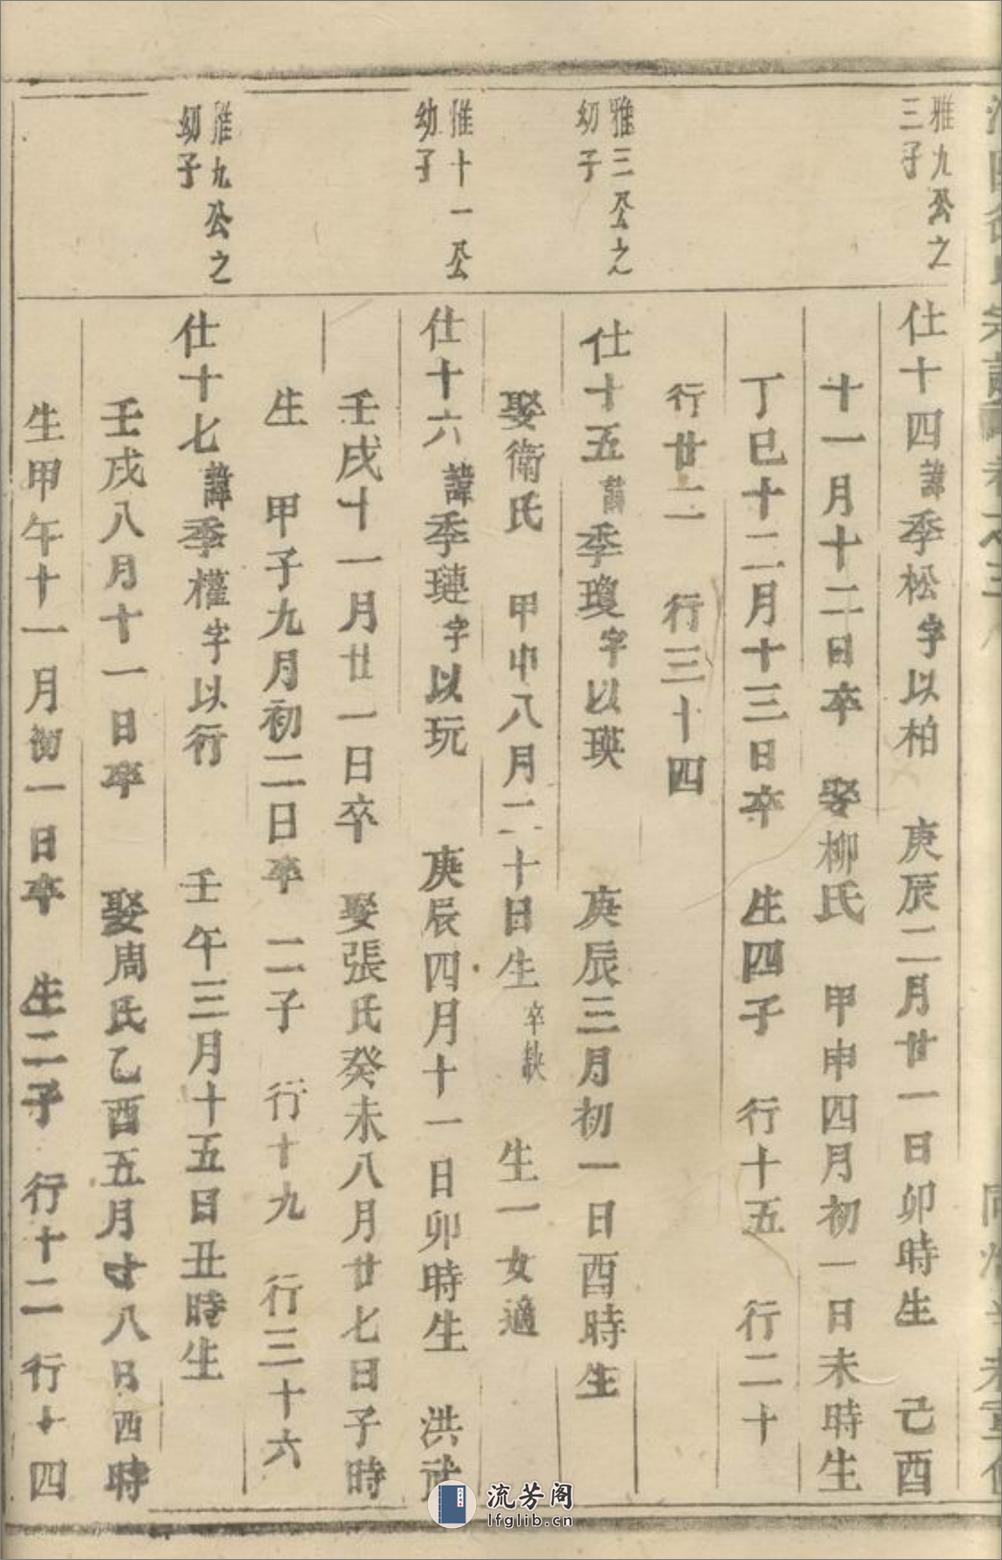 雅九公之
三子
仕十四諱季松字以柏 庚辰二月廿一日卯時生 己酉
十一月十二日卒 娶柳氏 甲申四月初一日未時生
丁巳十二月十三日卒 生四子 行十五 行二十
行廿二 行三十四
雅三公之
幼子
仕十五諱季瓊字以瑛 庚辰三月初一日酉時生
娶衛氏 甲申八月二十日生卒缺 生一女適
雅十一公
幼子
仕十六諱季璉字以玩 庚辰四月十一日卯時生 洪武
壬戌十一月廿一日卒 娶張氏癸未八月廿七日子時
生 甲子九月初二日卒 二子 行十九 行三十六
雅九公之
幼子
仕十七諱季權字以行 壬午三月十五日丑時生
壬戌八月十一日卒 娶周氏乙酉五月廿八日酉時
生甲午十一月初一日卒 生二子 行十二 行十四
流芳阁
lfglib.cn